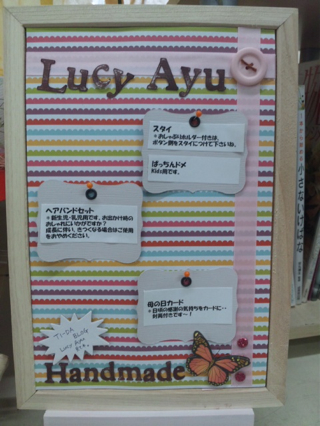 Lucy Ayu
スタイ
*おしゃぶりホルダー付きは、
ボタン側をスタイにつけて下さいね。
ぱっちんドメ
Kids用です。
ヘアバンドセット
*新生児・乳児用です。お出かけ時の
おしゃれにいかがですか?
成長に伴い、きつくなる場合はご使用
をおやめください。
母の日カード
*日頃の感謝の気持ちをカードに・・
封筒付きです~!
TI-DA BLOG
Lucy Ayu
Handmade